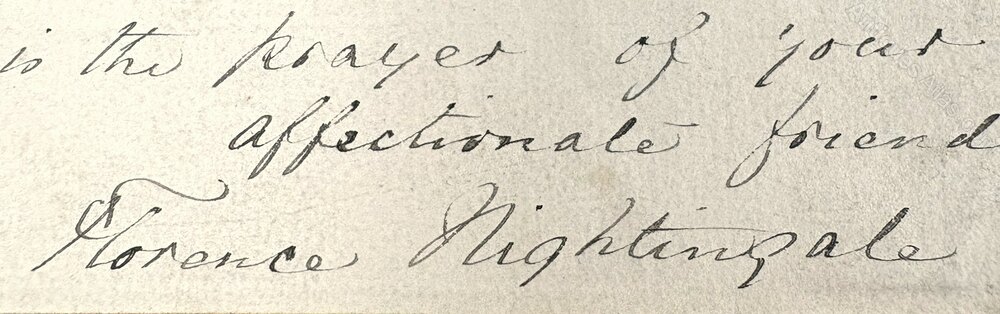 is the prayer of your
affectionate friend
Florence Nightingale